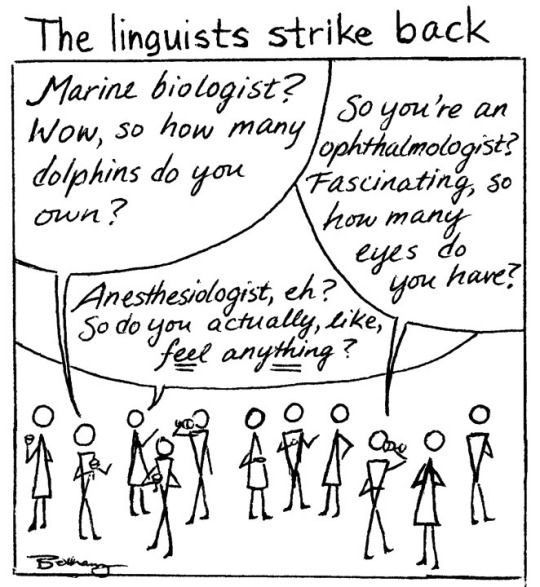 The linguists strike back
Marine biologist?
Wow, so how many
dolphins do you
own?
So you're an
ophthalmologist?
Fascinating, so
how many
eyes do
you have?
Anesthesiologist, eh?
So do you actually, like,
feel anything?